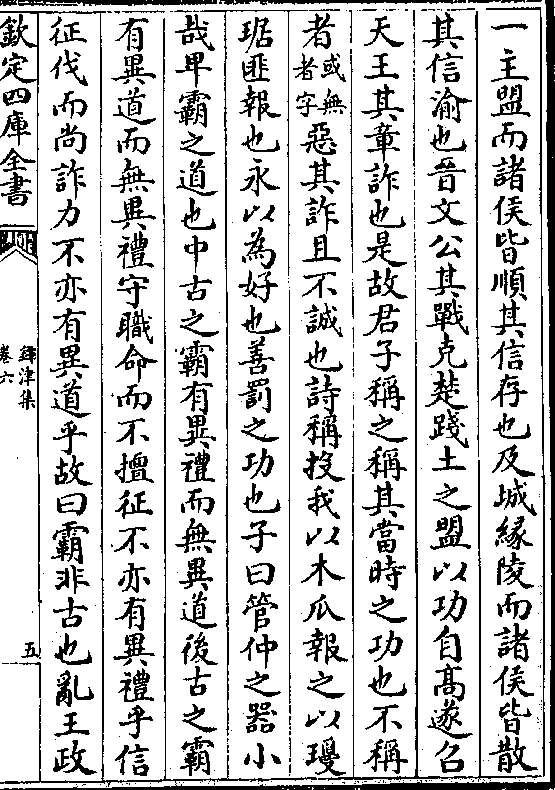 一主盟而諸侯皆順其信存也及城緣陵而諸侯皆散
其信渝也晉文公其戰克楚踐土之盟以功自髙遂召
天王其章詐也是故君子稱之稱其當時之功也不稱
者或無者字惡其詐且不誠也詩稱投我以木瓜報之以瓊
琚匪報也永以為好也善罰之功也子曰管仲之器小
哉卑霸之道也中古之霸有異禮而無異道後古之霸
有異道而無異禮守職命而不擅征不亦有異禮乎信
征伐而尚詐力不亦有異道乎故曰霸非古也亂王政
欽定四庫全書
鐔津集
卷六
五